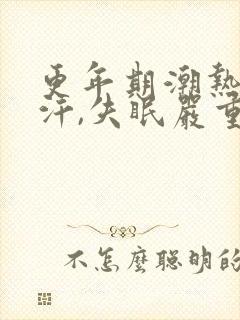 更年期潮熱
汗,失眠嚴重
不怎麼聰明的